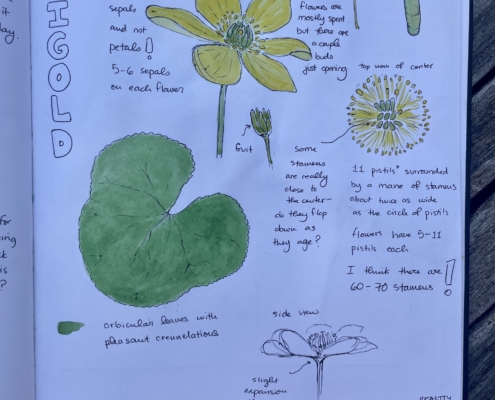 it
day.
IGOLD
sepals
and not
petals!
5-6 sepals
on each flower
flowers are
mostly spent
but there are
a couple
buds
just opening
top view of center
fruit
some
stamens
are really
close to
the center-
do they flop
down as
they age?
11 pistils* surrounded
by a mane of stamens
about twice as wide
as the circle of pistils
flowers have 5-11
pistils each
I think there are
60-70 stamens!
for
is
?
orbicular leaves with
pleasant crennelations
side view
slight
expansion